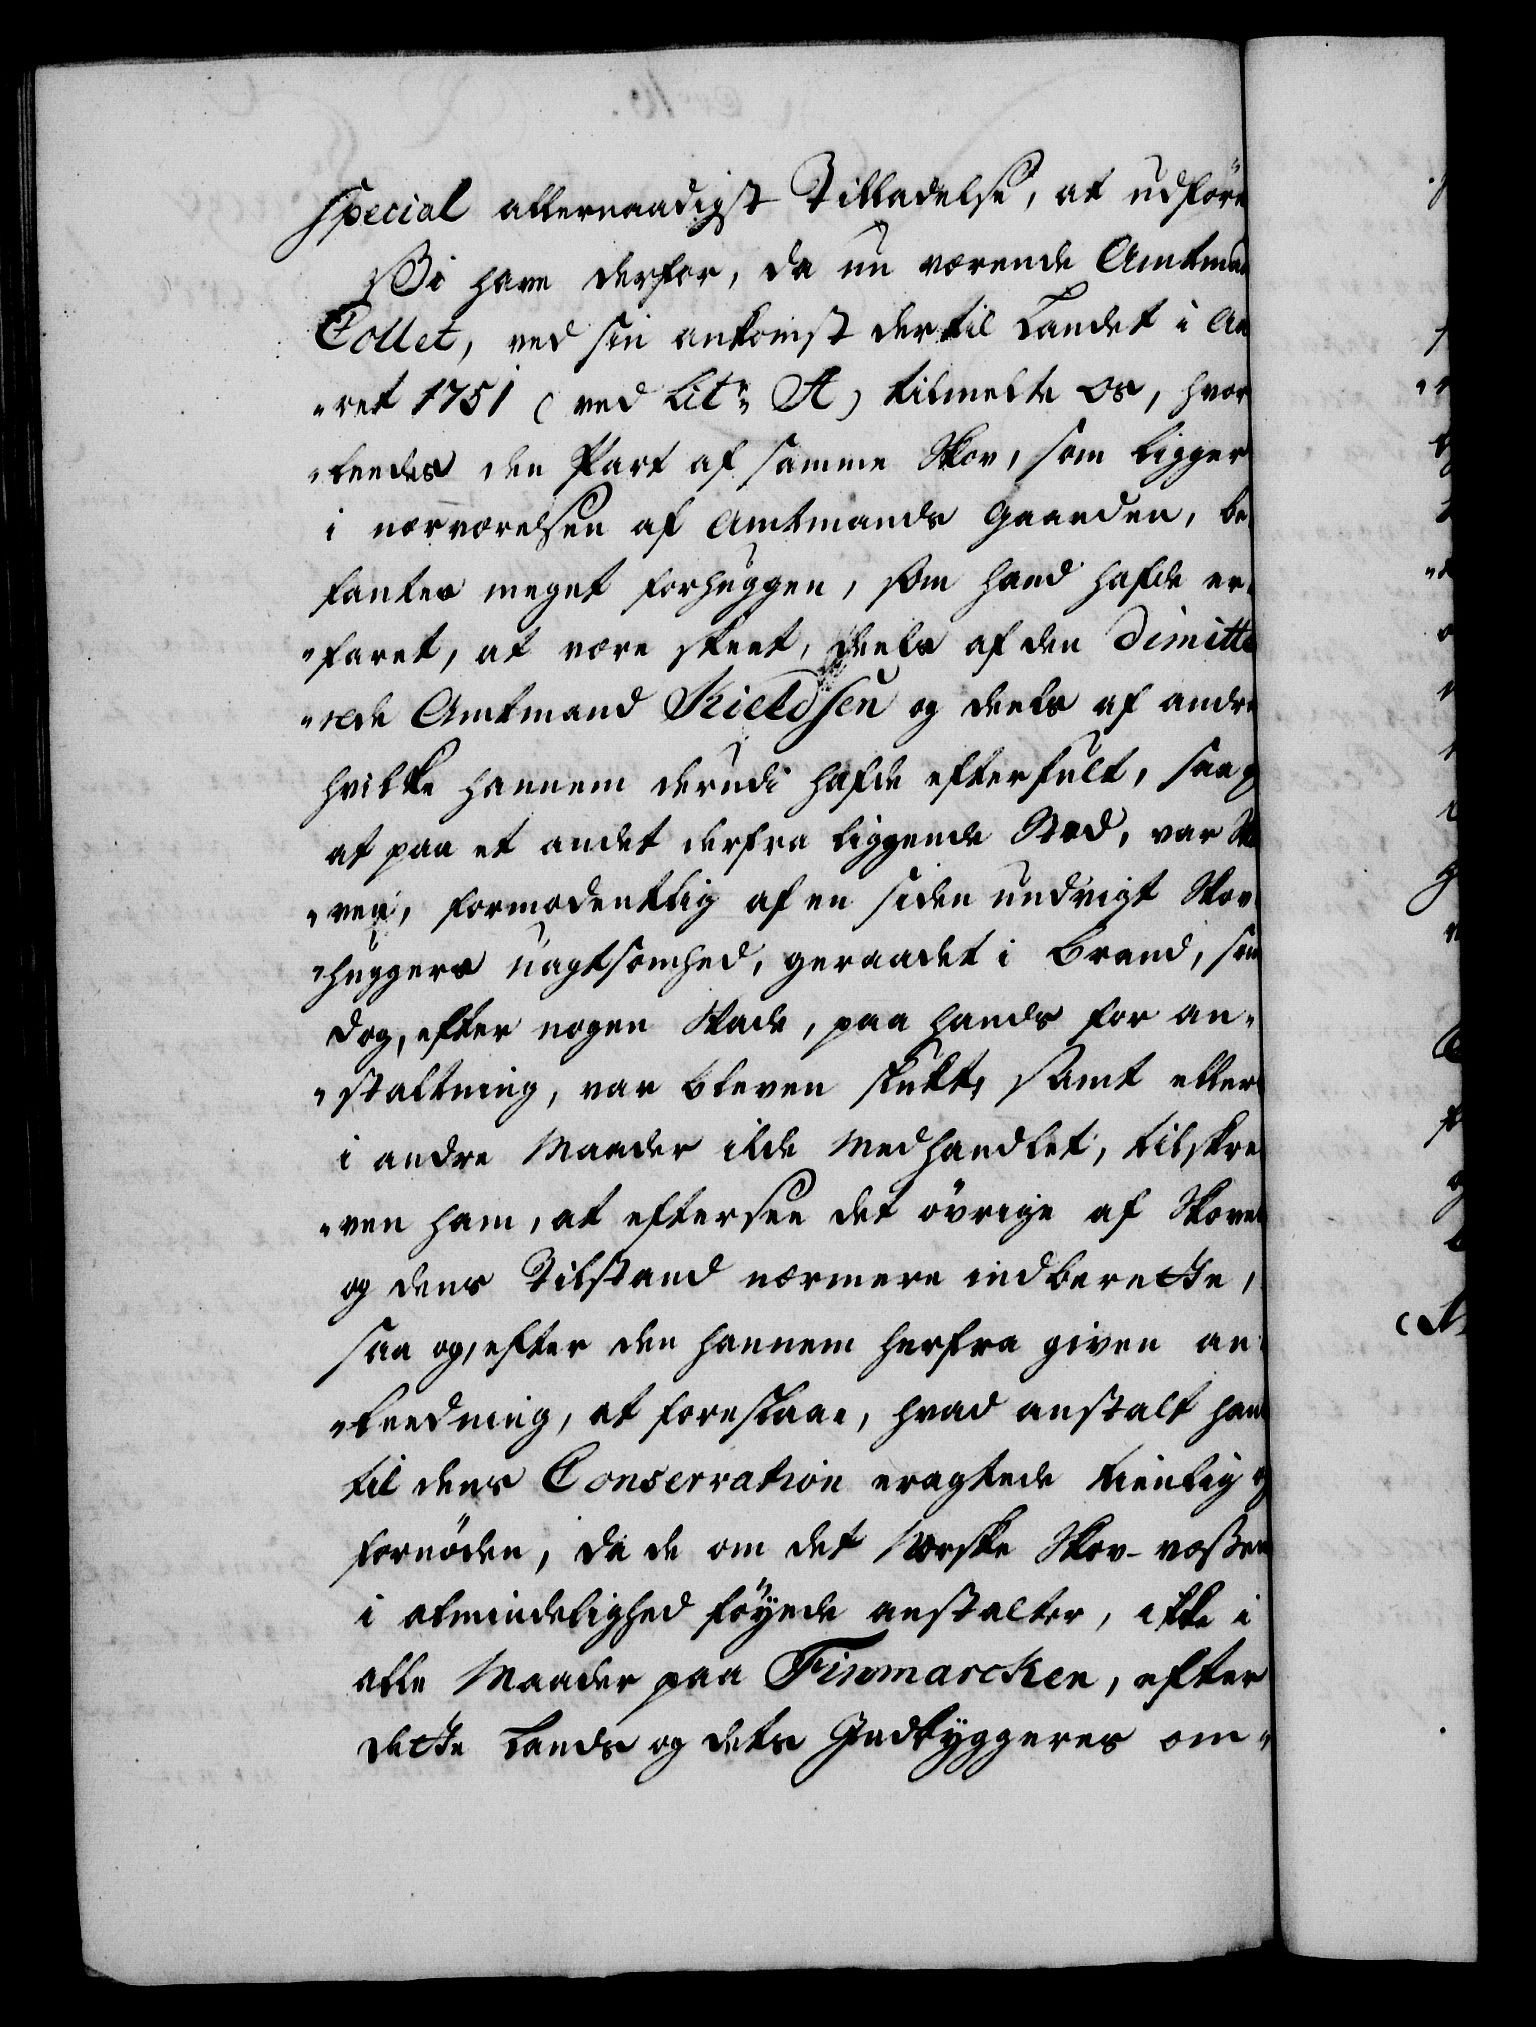 special allernaadigst Tilladelse, at udføre
Vi have derfor, da nu værende Amtmand
Collet, ved sin ankomst dertil Landet i Aa„
„ret 1751 (ved Lit: A) tilmelte os, hvor„
„leedes den Part af samme Skov, som ligger
i nærværelsen af Amtmands Gaarden, be„
fantes meget forhuggen, som hand hafde er„
„faret, at være skeet, deels af den Dimitte„
„rede Amtmand Kieldsen og deels af andre
hvilke hannem derudi hafde efterfult, saa og
at paa et andet derfra liggende Stæd, var Sko„
„ven, formodentlig af en siden undvigt Skov„
„huggers uagtsomhed, geraadet i Brand, som
dog, efter nogen Skade, paa hands for an„
„staltning, var bleven slukt, samt ellers
i andre Maader ilde Medhandlet, tilskre„
„ven ham, at eftersee det øvrige af Skoven
og dens Tilstand nærmere indberette,
saa og, efter den hannem herfra given an„
„leedning, at foreslaae, hvad anstalt hand
til dens Conservation eragtede tienlig og
fornøden, da de om det Norske Skov-væßen
i almindelighed føyede anstalter, ikke i
alle Maader paa Finmarcken, efter
dette Lands og dets Indbyggeres om„